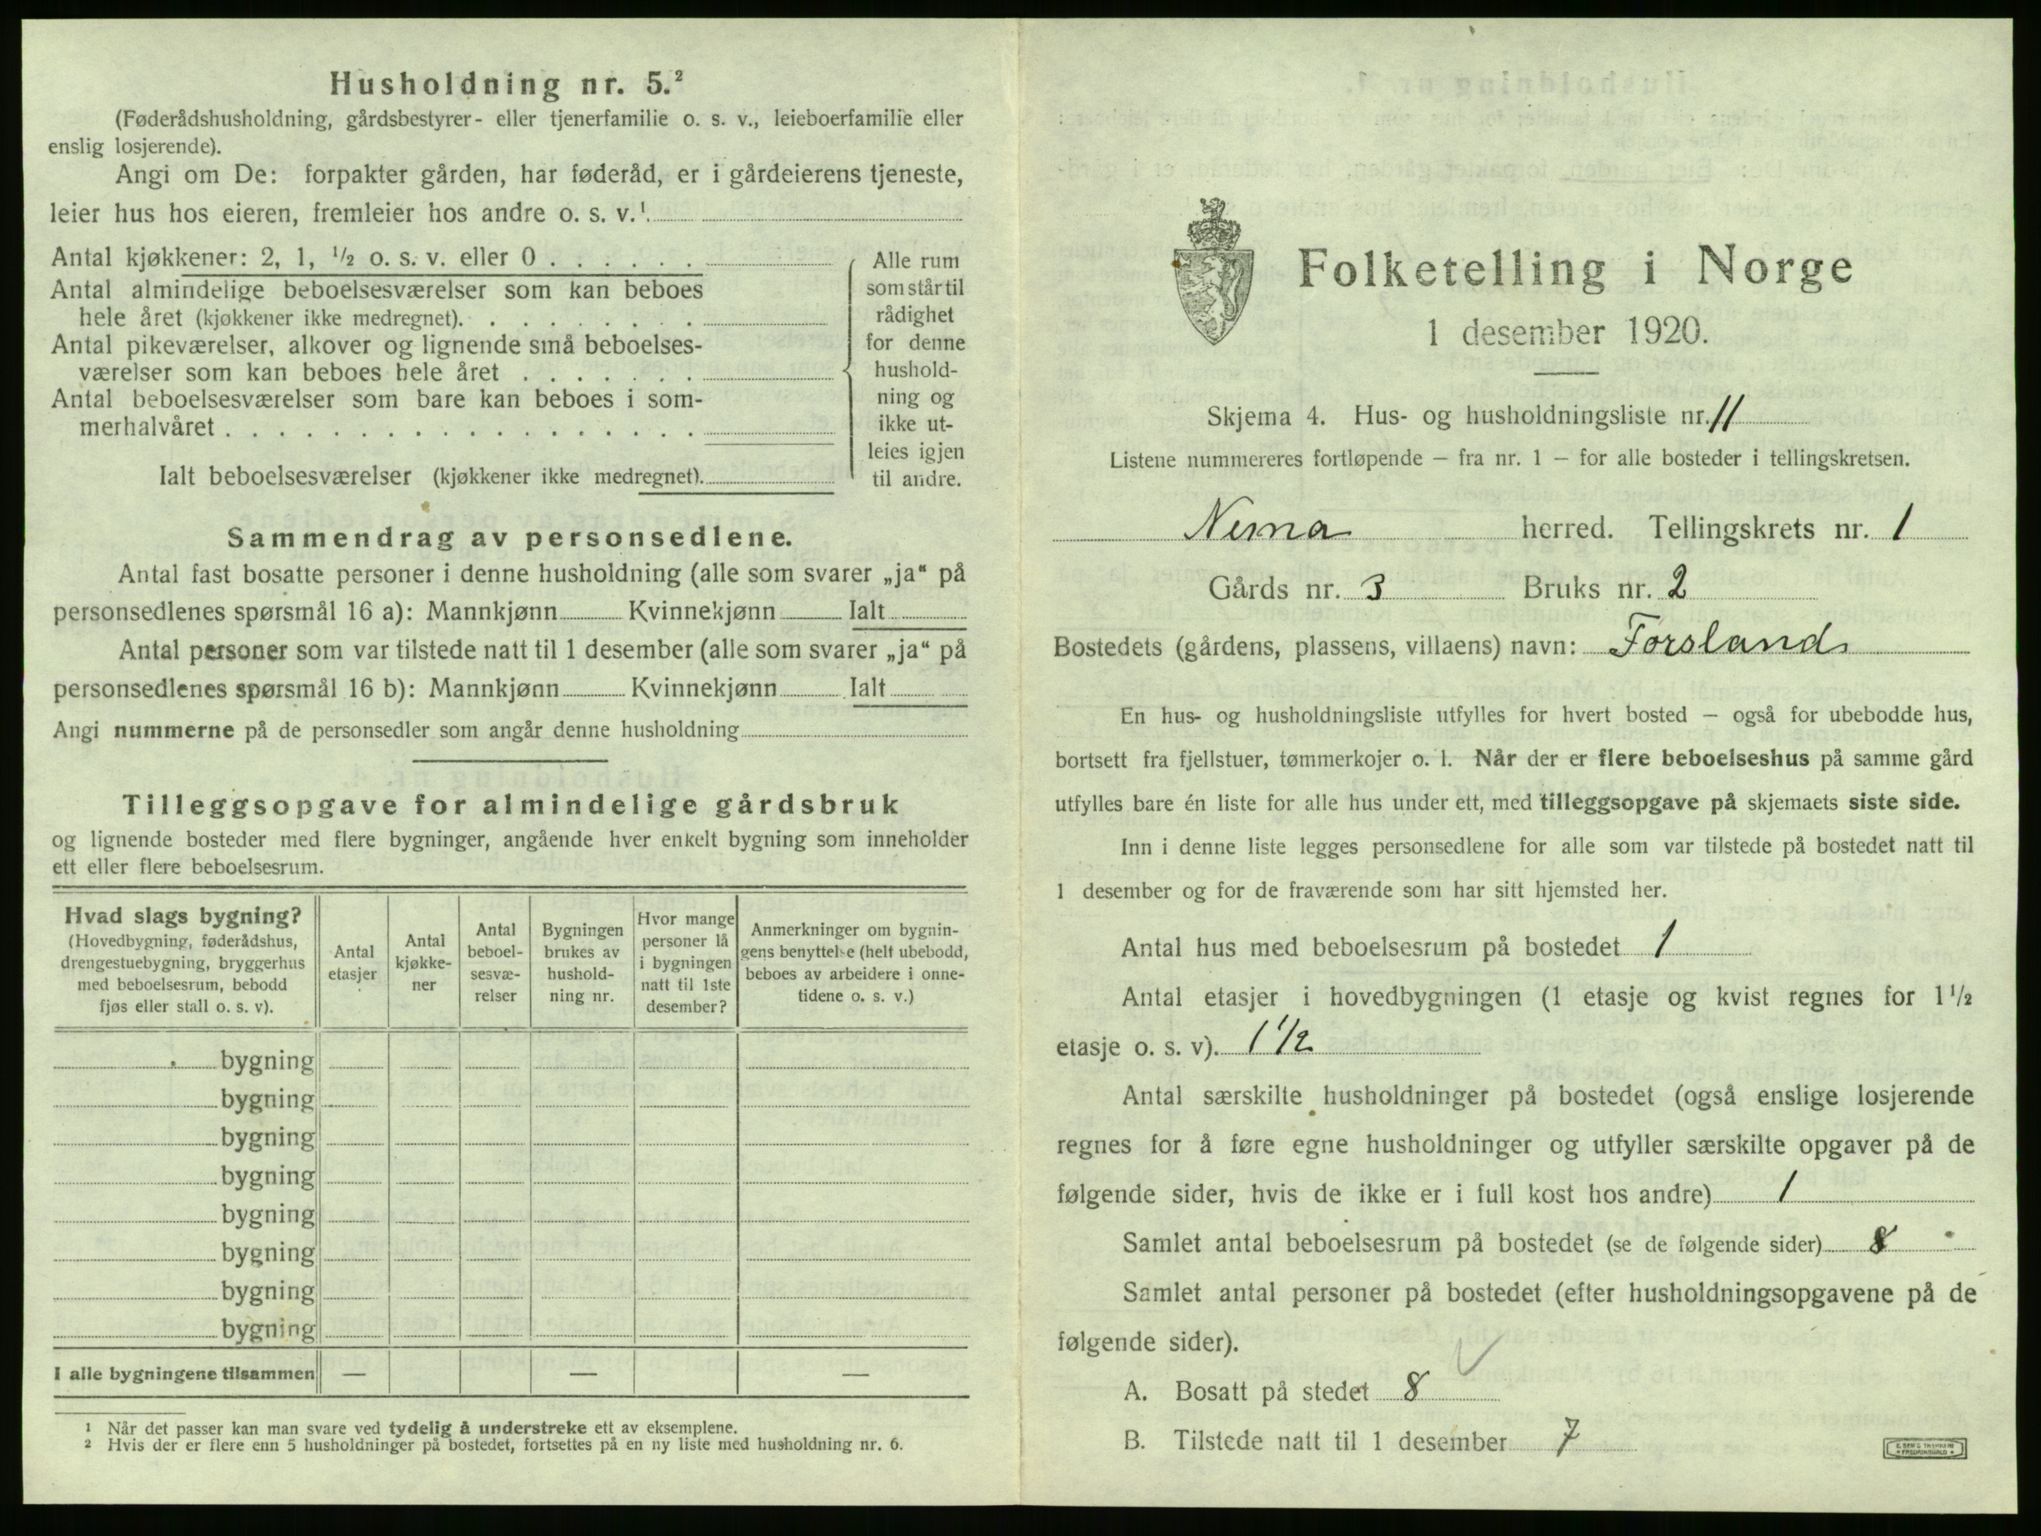 Husholdning nr. 5.²
(Føderådshusholdning, gårdsbestyrer- eller tjenerfamilie o. s. v., leieboerfamilie eller
enslig losjerende).
Angi om De: forpakter gården, har føderåd, er i gårdeierens tjeneste,
leier hus hos eieren, fremleier hos andre o. s. v.¹
Antal kjøkkener: 2, 1, ½ o. s. v. eller 0 . . . . . .
Antal almindelige beboelsesværelser som kan beboes
hele året (kjøkkener ikke medregnet). . . . . . . . .
Antal pikeværelser, alkover og lignende små beboelses-
værelser som kan beboes hele året . . . . . . .
Antal beboelsesværelser som bare kan beboes i som-
merhalvåret . . . . . . . . . . . . . . . . . .
Ialt beboelsesværelser (kjøkkener ikke medregnet).
Alle rum
som står til
rådighet
for denne
hushold-
ning og
ikke ut-
leies igjen
til andre.
Sammendrag av personsedlene.
Antal fast bosatte personer i denne husholdning (alle som svarer „ja“ på
personsedlenes spørsmål 16 a): Mannkjønn Kvinnekjønn Ialt
Antal personer som var tilstede natt til 1 desember (alle som svarer „ja“ på
personsedlenes spørsmål 16 b): Mannkjønn Kvinnekjønn Ialt
Angi nummerne på de personsedler som angår denne husholdning
Tilleggsopgave for almindelige gårdsbruk
og lignende bosteder med flere bygninger, angående hver enkelt bygning som inneholder
ett eller flere beboelsesrum.
Hvad slags bygning?
(Hovedbygning, føderådshus,
drengestuebygning, bryggerhus
med beboelsesrum, bebodd
fjøs eller stall o. s. v).
Antal
etasjer
Antal
kjøkke-
ner
Antal
beboel-
sesvæ-
relser
Bygningen
brukes av
hushold-
ning nr.
Hvor mange
personer lå
i bygningen
natt til 1ste
desember?
Anmerkninger om bygnin-
gens benyttelse (helt ubebodd,
beboes av arbeidere i onne-
tidene o. s. v.)
bygning
bygning
bygning
bygning
bygning
bygning
bygning
bygning
I alle bygningene tilsammen — — —
¹ Når det passer kan man svare ved tydelig å understreke ett av eksemplene.
² Hvis der er flere enn 5 husholdninger på bostedet, fortsettes på en ny liste med husholdning nr. 6.
Folketelling i Norge
1 desember 1920.
Skjema 4. Hus- og husholdningsliste nr. 11
Listene nummereres fortløpende – fra nr. 1 – for alle bosteder i tellingskretsen.
Nesna herred. Tellingskrets nr. 1
Gårds nr. 3 Bruks nr. 2
Bostedets (gårdens, plassens, villaens) navn: Forsland
En hus- og husholdningsliste utfylles for hvert bosted – også for ubebodde hus,
bortsett fra fjellstuer, tømmerkojer o. l. Når der er flere beboelseshus på samme gård
utfylles bare én liste for alle hus under ett, med tilleggsopgave på skjemaets siste side.
Inn i denne liste legges personsedlene for alle som var tilstede på bostedet natt til
1 desember og for de fraværende som har sitt hjemsted her.
Antal hus med beboelsesrum på bostedet 1
Antal etasjer i hovedbygningen (1 etasje og kvist regnes for 1½
etasje o. s. v). 1 ½
Antal særskilte husholdninger på bostedet (også enslige losjerende
regnes for å føre egne husholdninger og utfyller særskilte opgaver på de
følgende sider, hvis de ikke er i full kost hos andre) 1
Samlet antal beboelsesrum på bostedet (se de følgende sider) 8
Samlet antal personer på bostedet (efter husholdningsopgavene på de
følgende sider).
A. Bosatt på stedet 8
B. Tilstede natt til 1 desember 7